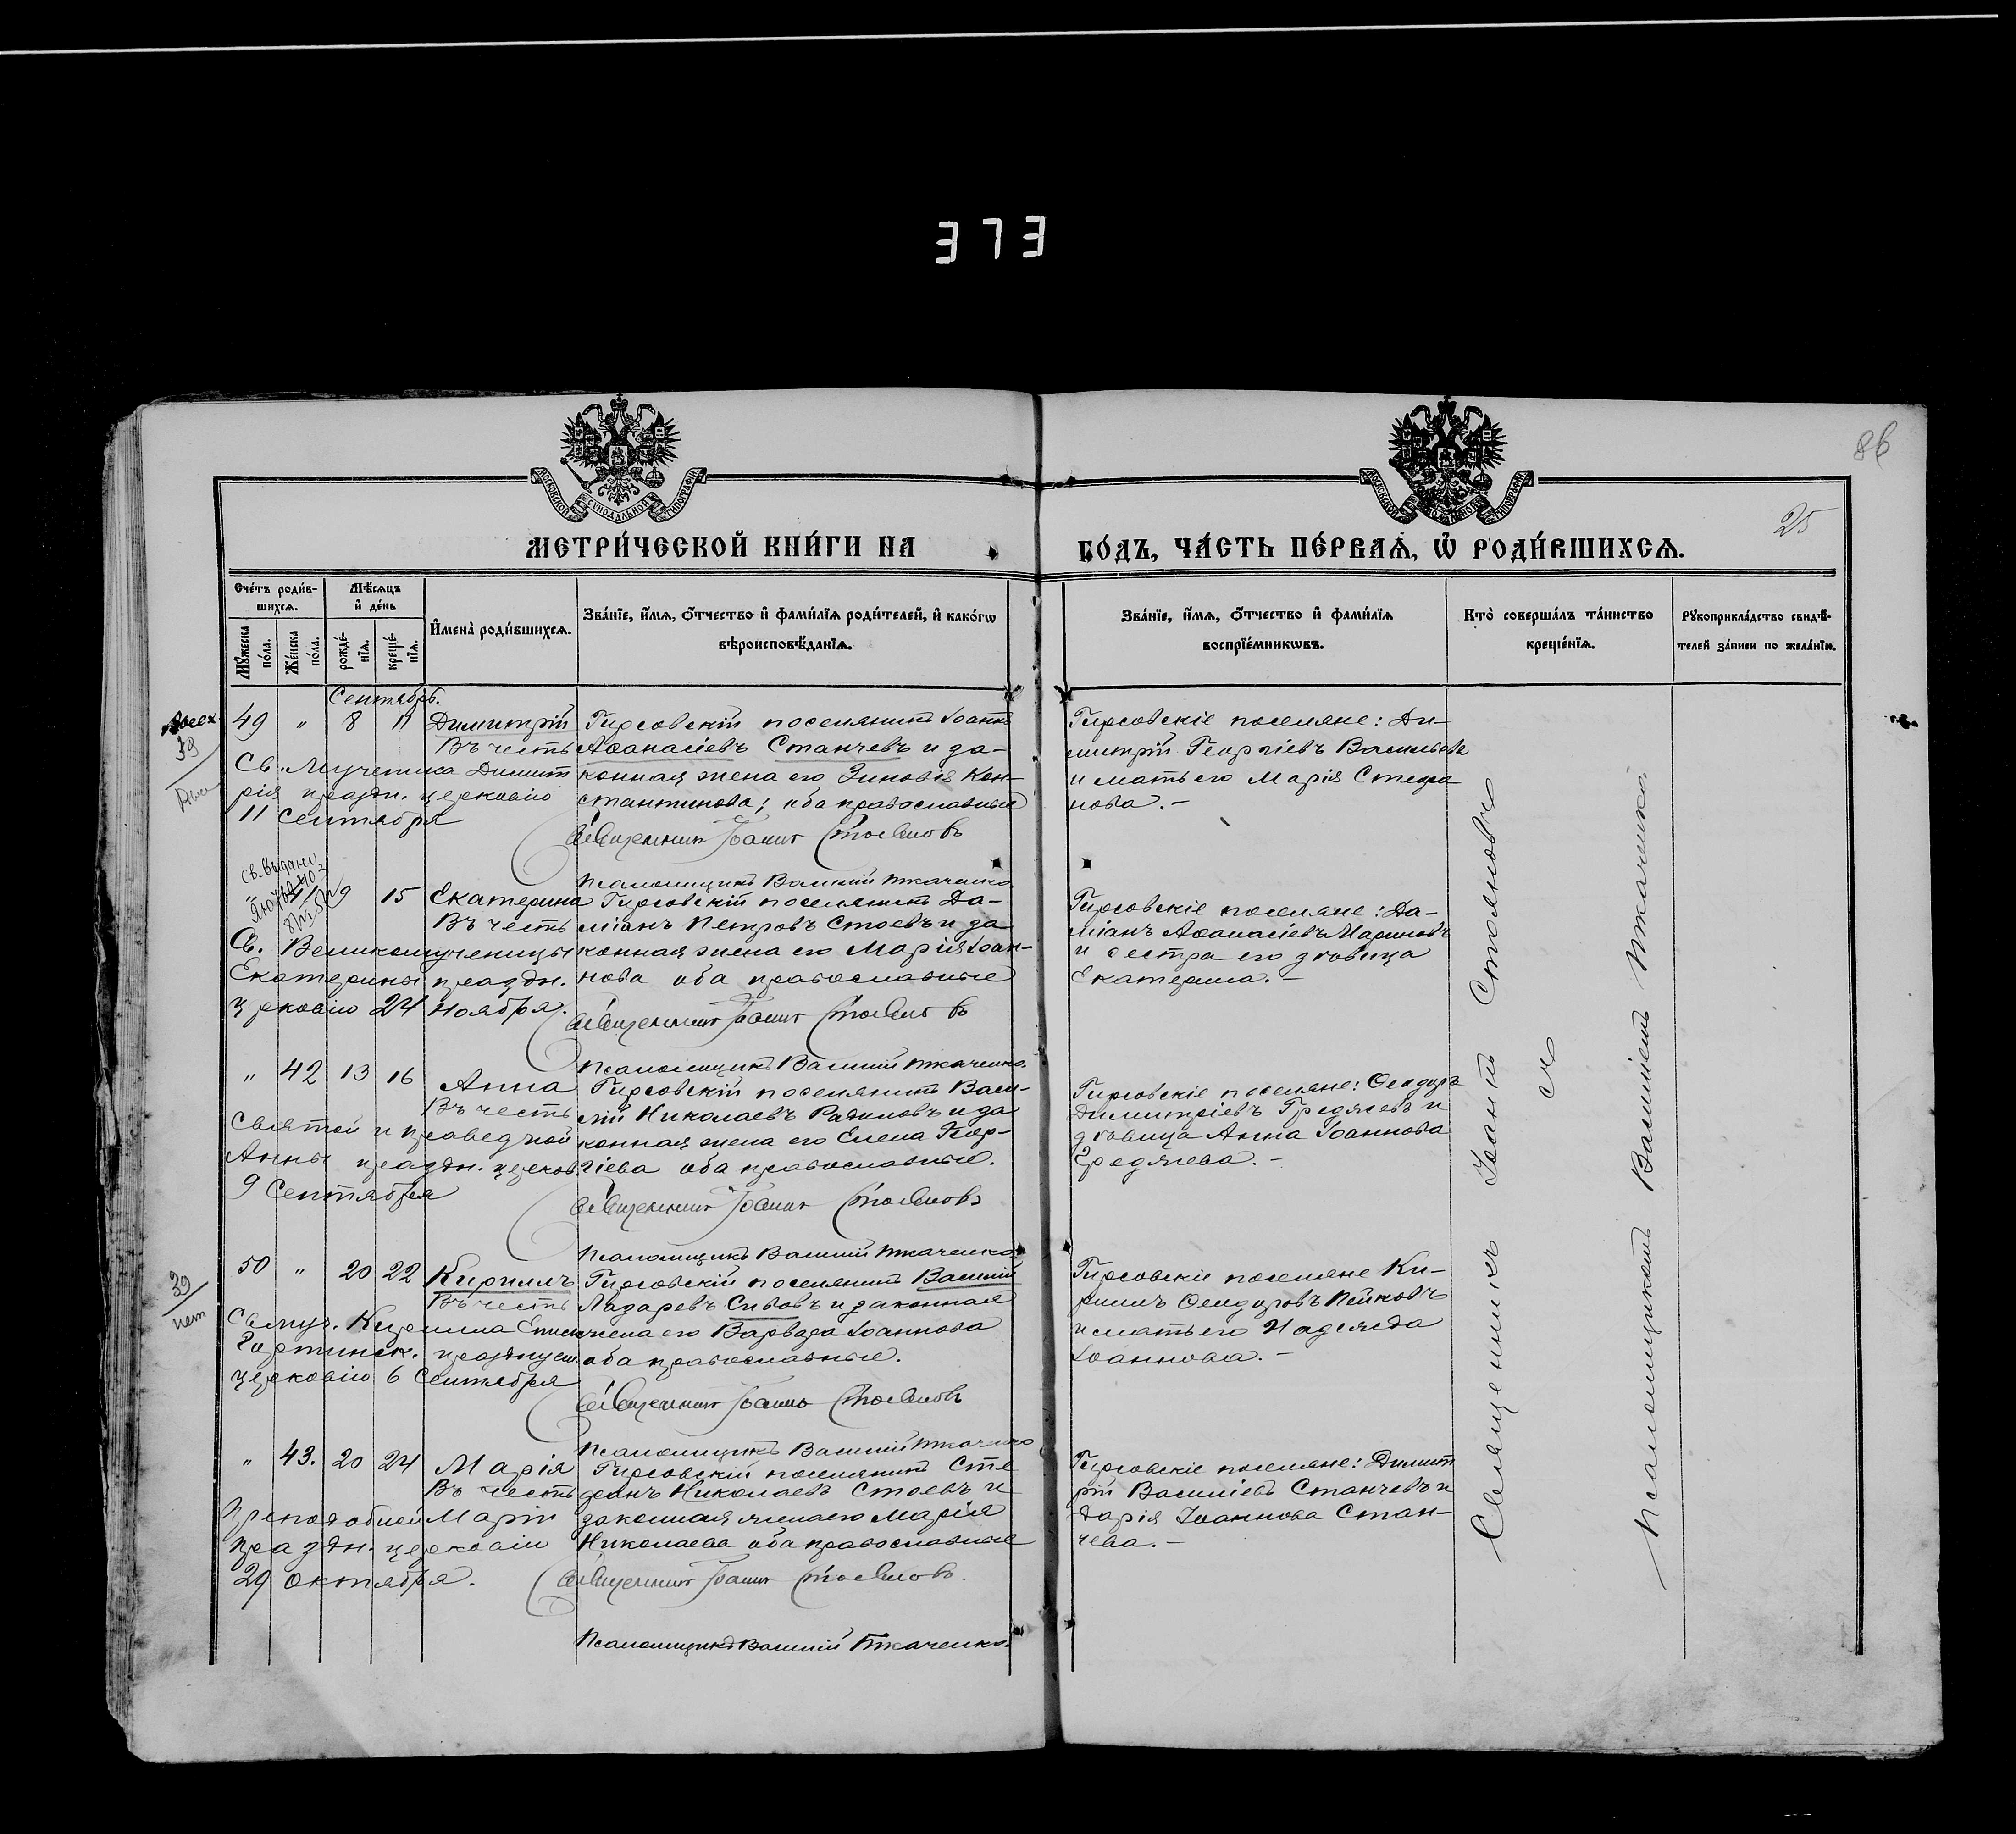 373
86
25
МОСКОВСКОЙ СѴНОДАЛЬНОЙ ТИПОГРАФІИ
МОСКОВСКОЙ СѴНОДАЛЬНОЙ ТИПОГРАФІИ
МЕТРИ́ЧЕСКОЙ КНИ́ГИ НА
ГО́ДЪ, ЧА́СТЬ ПЕ́РВАѦ, Ѡ РОДИ́ВШИХСѦ.
Сче́тъ роди́в-
шихсѧ.
Мѣ́сѧцъ
и҆ де́нь
Мꙋ́жеска
по́ла.
Же́нска
по́ла.
рожде́-
нїѧ.
креще́-
нїѧ.
И҆мена̀ роди́вшихсѧ.
Зва́нїе, и҆́мѧ, ѻ҆́тчество и҆ фами́лїѧ роди́телей, и҆ како́гѡ
вѣроисповѣ́данїѧ.
Зва́нїе, и҆́мѧ, ѻ҆́тчество и҆ фами́лїѧ
воспрїе́мникѡвъ.
Кто̀ соверша́лъ та́инство
креще́нїѧ.
Рꙋкоприкла́дство свидѣ́-
телей за́писи по жела́нїю.
Сентябрь.
49 " 8 11 Димитрій
Въ честь
Св. Мученика Димит
рія праздн. церковію
11 Сентября
Гирсовскій поселянинъ Іоаннъ
Аѳанасіевъ Станчевъ и за-
конная жена его Зиновія Кон-
стантинова; оба православные
Священникъ Іоаннъ Стояновъ
Псаломщикъ Василій Ткаченко
Гирсовскіе поселяне: Ди-
митрій Георгіевъ Васильевъ
и мать его Марія Стефа
нова.-
39
Св. выдано
" 9 15 Екатерина
Въ честь
Св. Великомученицы
Екатерины праздн.
церковію 24 Ноября.
Гирсовскій поселянинъ Да-
міанъ Петровъ Стоевъ и за
конная жена его Марія Іоан-
нова оба православные
Священникъ Іоаннъ Стояновъ
Псаломщикъ Василій Ткаченко.
Гирсовскіе поселяне: Да-
міанъ Аѳанасіевъ Мариновъ
и сестра его дѣвица
Екатерина.-
" 42 13 16 Анна
Въ честь
Святой и праведной
Анны праздн. церков.
9 Сентября
Гирсовскій поселянинъ Васи-
лій Николаевъ Радиловъ и за
конная жена его Елена Геор-
гіева оба православные.
Священникъ Іоаннъ Стояновъ
Псаломщикъ Василій Ткаченко
Гирсовскіе поселяне: Ѳеодоръ
Димитріевъ Гредячевъ и
дѣвица Анна Іоаннова
Гредячева.-
39
нет
50 " 20 22 Кириллъ
Въ честь
Св. муч. Кирилла Епис.
Гортинск. празднуем.
церковію 6 Сентября
Гирсовскій поселянинъ Василій
Лазаревъ Сивовъ и законная
жена его Варвара Іоаннова
оба православные.
Священникъ Іоаннъ Стояновъ
Псаломщикъ Василій Ткаченко
Гирсовскіе поселяне Ки-
риллъ Ѳеодоровъ Пейковъ
и мать его Надежда
Іоаннова.-
" 43. 20 24 Марія
Въ честь
Преподобной Маріи
праздн. церковію
29 Октября.
Гирсовскій поселянинъ Сте
фанъ Николаевъ Стоевъ и
законная жена его Марія
Николаева оба православные
Священникъ Іоаннъ Стояновъ.
Псаломщикъ Василій Ткаченко.
Гирсовскіе поселяне: Димит
рій Василіевъ Станчевъ и
Дарія Іоаннова Стан-
чева.-
Священникъ Іоаннъ Стояновъ
съ
Псаломщикомъ Василіемъ Ткаченко